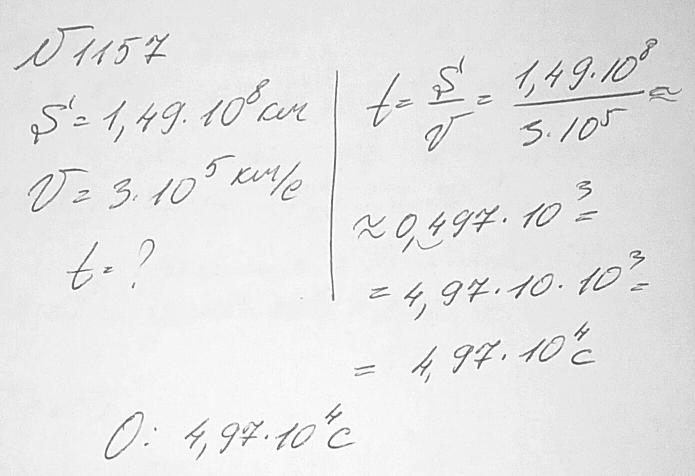 N 1157
S = 1,49 · 10⁸ км
V = 3 · 10⁵ км/с
t = ?
t = S/V = 1,49 · 10⁸ / 3 · 10⁵ ≈
≈ 0,497 · 10³ =
= 4,97 · 10 · 10³ =
= 4,97 · 10⁴ с
О: 4,97 · 10⁴ с